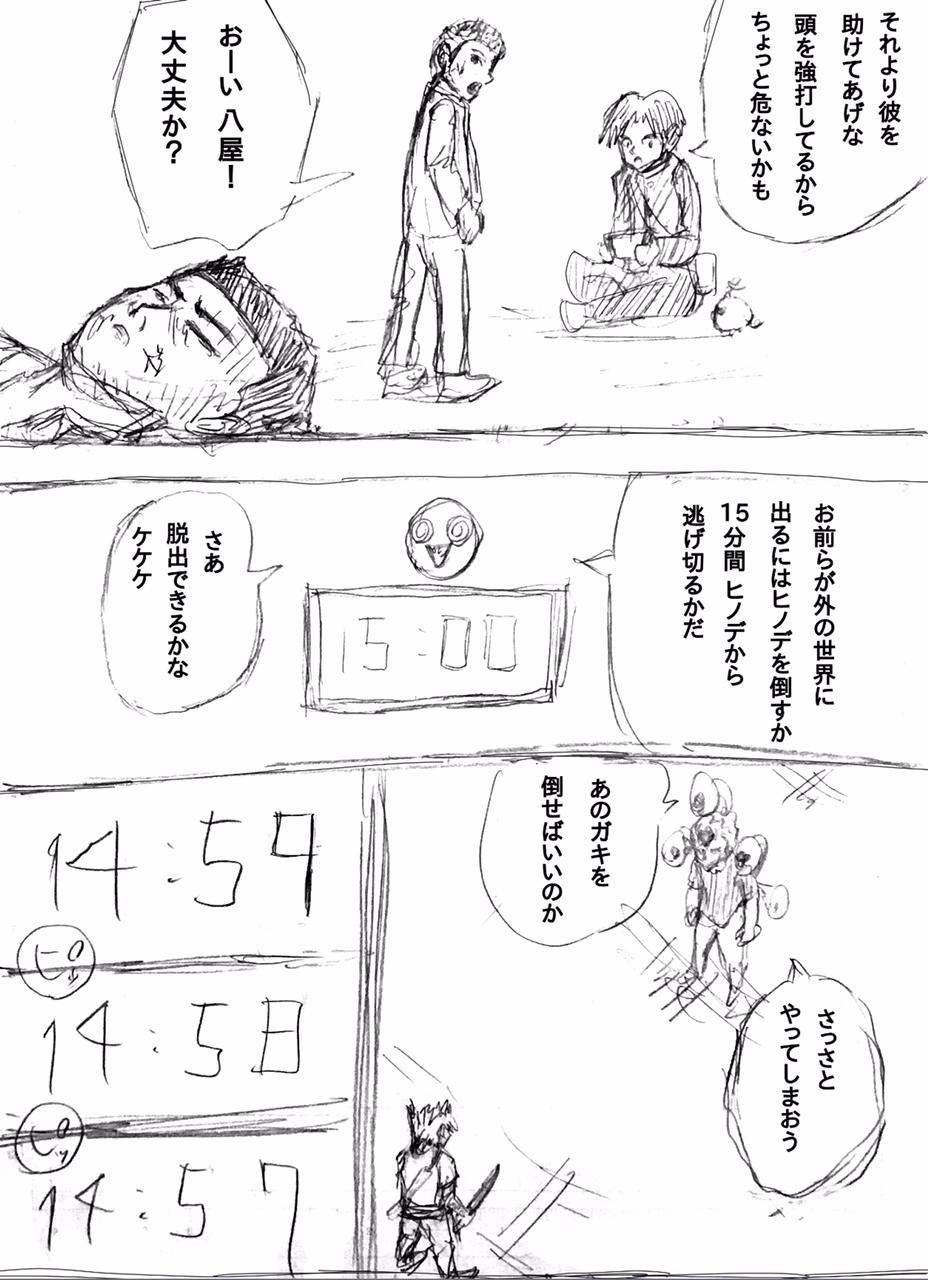 それより彼を
助けてあげな
頭を強打してるから
ちょっと危ないかも
おーい 八屋!
大丈夫か?
お前らが外の世界に
出るにはヒノデを倒すか
15分間 ヒノデから
逃げ切るかだ
15:00
さあ
脱出できるかな
ケケケ
あのガキを
倒せばいいのか
さっさと
やってしまおう
14:59
ピッ
14:58
ピッ
14:57